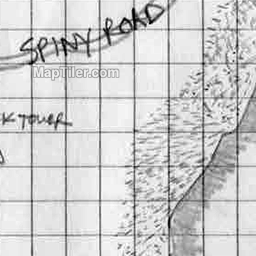 SPINY ROAD
MapTiler.com
CK TOWER